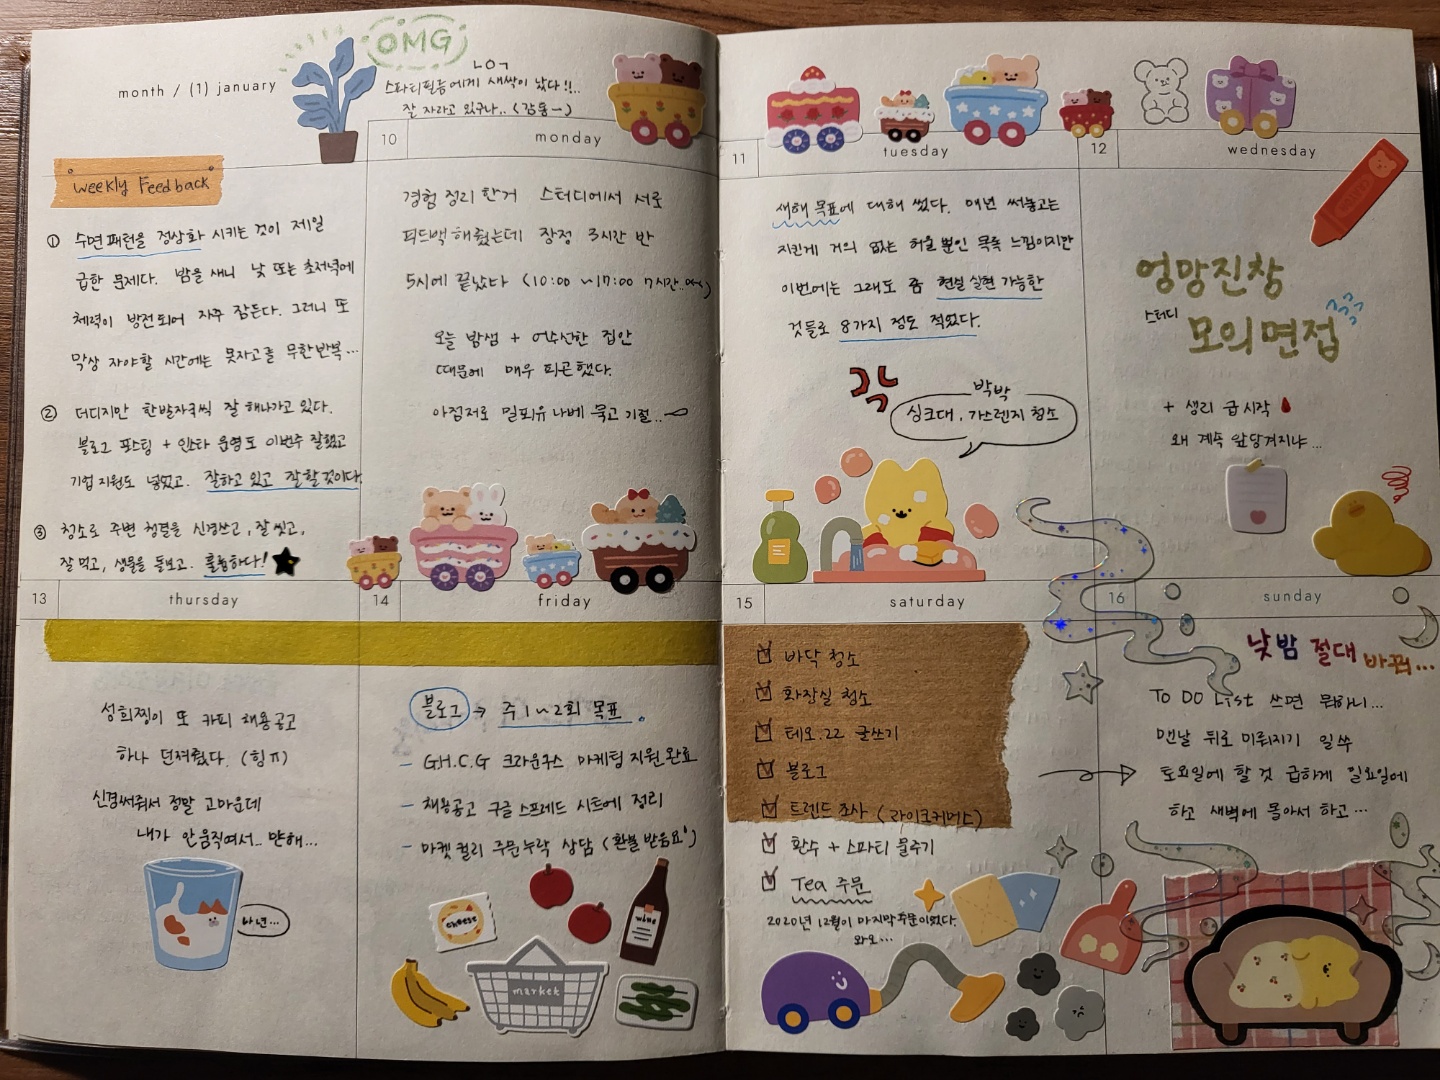 month / (1) january
OMG
ㄴㅇㄱ
스파티필름에게 새싹이 났다!!..
잘 자라고 있구나.. (감동ㅡ)
Weekly Feedback
① 수면패턴을 정상화 시키는 것이 제일
급한 문제다. 밤을 새니 낮 또는 초저녁에
체력이 방전되어 자주 잠든다. 그러니 또
막상 자야할 시간에는 못자고를 무한반복...
② 더디지만 한발자국씩 잘 해나가고 있다.
블로그 포스팅 + 인스타 운영도 이번주 잘했고
기업 지원도 넣었고. 잘하고 있고 잘할것이다.
③ 청소로 주변 청결을 신경쓰고, 잘 씻고,
잘 먹고, 생물을 돌보고. 훌륭하다!
10 monday
경험 정리 한거 스터디에서 서로
피드백 해줬는데 장정 3시간 반
5시에 끝났다 (10:00 ~17:00 7시간..)
오늘 밤샘 + 어수선한 집안
때문에 매우 피곤했다.
아점저로 밀푀유 나베 묵고 기절..
11 tuesday
새해 목표에 대해 썼다. 매년 써놓고는
지킨게 거의 없는 허울 뿐인 목록 느낌이지만
이번에는 그래도 좀 현실 실현 가능한
것들로 8가지 정도 적었다.
박박
싱크대, 가스렌지 청소
12 wednesday
엉망진창
스터디
모의면접
+ 생리 급시작
왜 계속 앞당겨지냐...
13 thursday
성희찡이 또 카피 채용공고
하나 던져줬다. (힝ㅠ)
신경써줘서 정말 고마운데
내가 안움직여서.. 만해...
14 friday
블로그 → 주 1~2회 목표.
- G.H.C.G 크라운구스 마케팅 지원 완료
- 채용공고 구글 스프레드 시트에 정리
- 마켓컬리 주문누락 상담 (환불 받음요!)
cheese
wine
market
15 saturday
바닥 청소
화장실 청소
테오.22 글쓰기
블로그
트렌드 조사 (라이크커머스)
환수 + 스파티 물주기
Tea 주문
2020년 12월이 마지막 주문이었다.
와오...
16 sunday
낮밤 절대 바꿔...
TO DO List 쓰면 뭐하니...
맨날 뒤로 미뤄지기 일쑤
토요일에 할 것 급하게 일요일에
하고 새벽에 몰아서 하고...